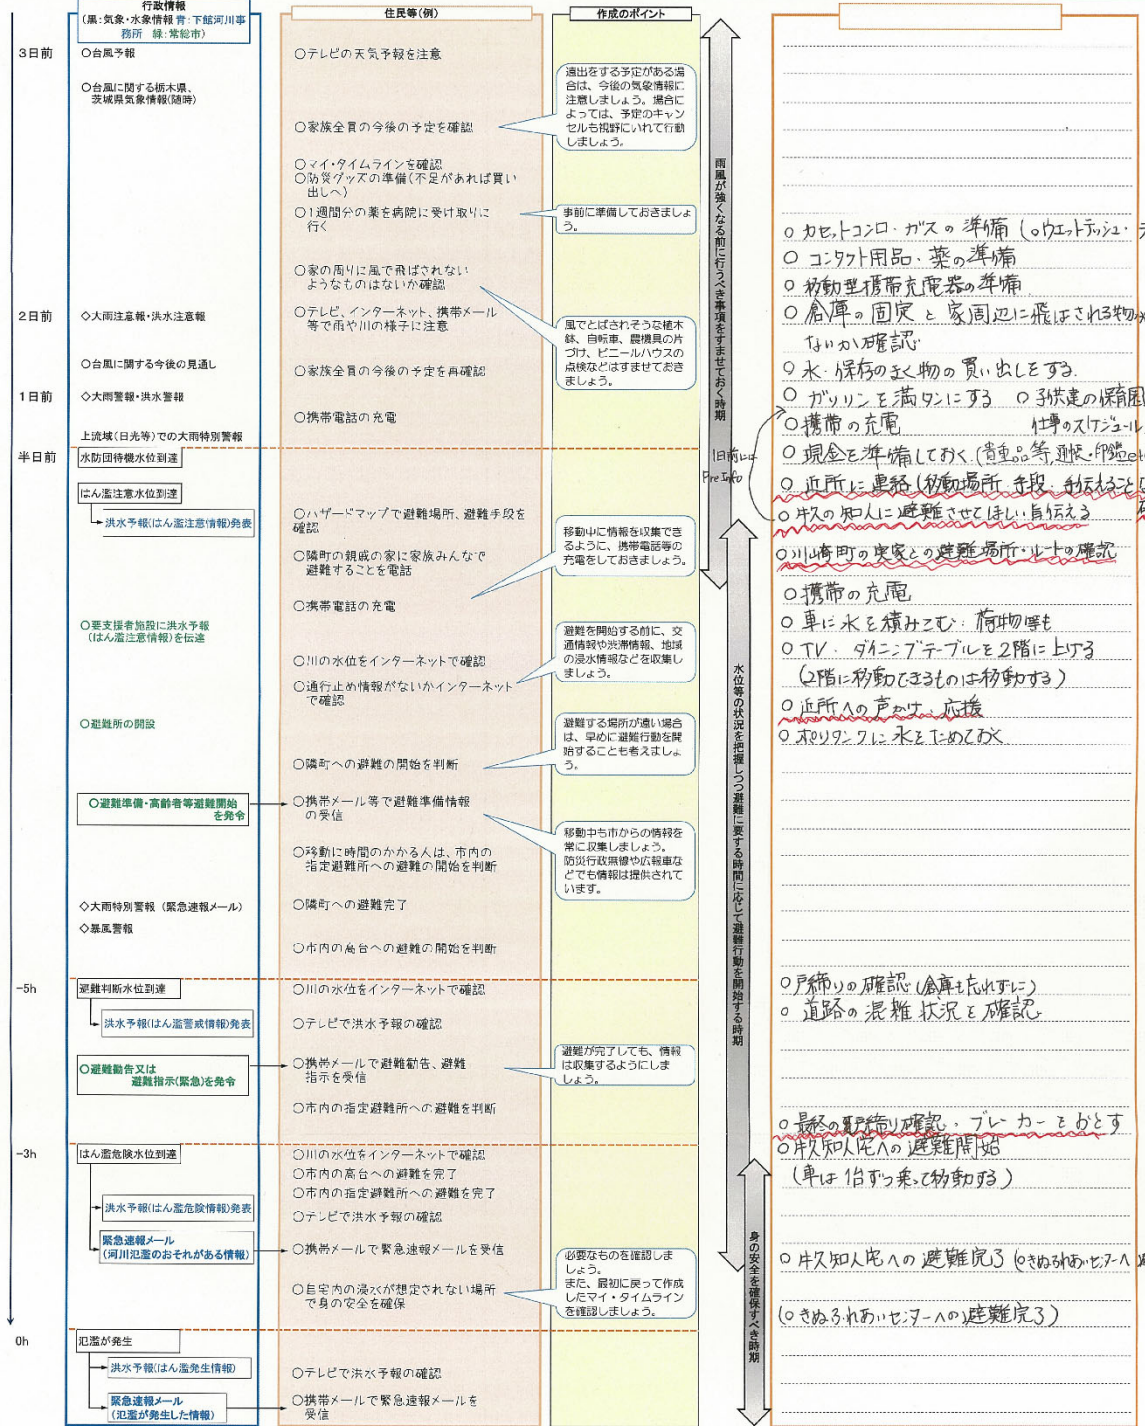 行政情報
(黒:気象・水象情報 青:下館河川事
務所 緑:常総市)
3日前
○台風予報
○台風に関する栃木県、
茨城県気象情報(随時)
2日前
◇大雨注意報・洪水注意報
○台風に関する今後の見通し
1日前
◇大雨警報・洪水警報
上流域(日光等)での大雨特別警報
半日前
水防団待機水位到達
はん濫注意水位到達
洪水予報(はん濫注意情報)発表
○要支援者施設に洪水予報
(はん濫注意情報)を伝達
○避難所の開設
○避難準備・高齢者等避難開始
を発令
◇大雨特別警報 (緊急速報メール)
◇暴風警報
-5h
避難判断水位到達
洪水予報(はん濫警戒情報)発表
○避難勧告又は
避難指示(緊急)を発令
-3h
はん濫危険水位到達
洪水予報(はん濫危険情報)発表
緊急速報メール
(河川氾濫のおそれがある情報)
0h
氾濫が発生
洪水予報(はん濫発生情報)
緊急速報メール
(氾濫が発生した情報)
住民等(例)
○テレビの天気予報を注意
○家族全員の今後の予定を確認
○マイ・タイムラインを確認
○防災グッズの準備(不足があれば買い
出しへ)
○1週間分の薬を病院に受け取りに
行く
○家の周りに風で飛ばされない
ようなものはないか確認
○テレビ、インターネット、携帯メール
等で雨や川の様子に注意
○家族全員の今後の予定を再確認
○携帯電話の充電
○ハザードマップで避難場所、避難手段を
確認
○隣町の親戚の家に家族みんなで
避難することを電話
○携帯電話の充電
○川の水位をインターネットで確認
○通行止め情報がないかインターネット
で確認
○隣町への避難の開始を判断
○携帯メール等で避難準備情報
の受信
○移動に時間のかかる人は、市内の
指定避難所への避難の開始を判断
○隣町への避難完了
○市内の高台への避難の開始を判断
○川の水位をインターネットで確認
○テレビで洪水予報の確認
○携帯メールで避難勧告、避難
指示を受信
○市内の指定避難所への避難を判断
○川の水位をインターネットで確認
○市内の高台への避難を完了
○市内の指定避難所への避難を完了
○テレビで洪水予報の確認
○携帯メールで緊急速報メールを受信
○自宅内の浸水が想定されない場所
で身の安全を確保
○テレビで洪水予報の確認
○携帯メールで緊急速報メールを
受信
作成のポイント
遠出をする予定がある場
合は、今後の気象情報に
注意しましょう。場合に
よっては、予定のキャン
セルも視野にいれて行動
しましょう。
事前に準備しておきましょ
う。
風でとばされそうな植木
鉢、自転車、農機具の片
づけ、ビニールハウスの
点検などはすませておき
ましょう。
移動中に情報を収集でき
るように、携帯電話等の
充電をしておきましょう。
避難を開始する前に、交
通情報や渋滞情報、地域
の浸水情報などを収集し
ましょう。
避難する場所が遠い場合
は、早めに避難行動を開
始することも考えましょ
う。
移動中も市からの情報を
常に収集しましょう。
防災行政無線や広報車な
どでも情報は提供されて
います。
避難が完了しても、情報
は収集するようにしま
しょう。
必要なものを確認しま
しょう。
また、最初に戻って作成
したマイ・タイムライン
を確認しましょう。
雨風が強くなる前に行うべき事項をすませておく時期
水位等の状況を把握しつつ避難に要する時間に応じて避難行動を開始する時期
身の安全を確保すべき時期
○カセットコンロ・ガスの準備 (○ウエットティッシュ・
○コンタクト用品・薬の準備
○移動型携帯充電器の準備
○倉庫の固定と家周辺に飛ばされる物が
ないか確認
○水・保存のきく物の買い出しをする
○ガソリンを満タンにする ○子供達の保育園
○携帯の充電 仕事のスケジュール
○現金を準備しておく(貴重品等,通帳・印鑑etc
1日前には
Pre Info
○近所に連絡(移動場所・手段・手伝えること
○牛久の知人に避難させてほしい旨伝える
○川崎町の実家との避難場所・ルートの確認
○携帯の充電
○車に水を積みこむ・荷物等も
○TV・ダイニングテーブルを2階に上げる
(2階に移動できるものは移動する)
○近所への声かけ、応援
○ポリタンクに水をためておく
○戸締りの確認(倉庫も忘れずに)
○道路の混雑状況を確認
○最終の戸締り確認・ブレーカーをおとす
○牛久知人宅への避難開始
(車は1台ずつ乗って移動する)
○牛久知人宅への避難完了 (○きぬふれあいセンターへ
(○きぬふれあいセンターへの避難完了)